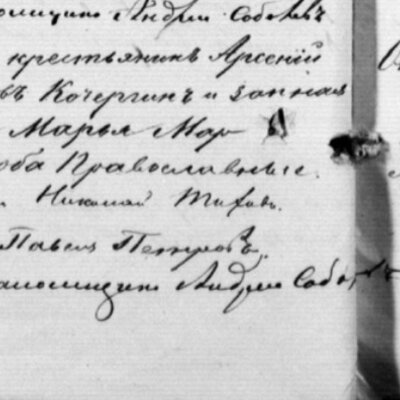 Андрей Соболевъ
крестьянинъ Арсеній
въ Кочергинъ и законная
Марья Мар
оба Православные.
Николай Титовъ.
Павелъ Петровъ.
Андрей Собо